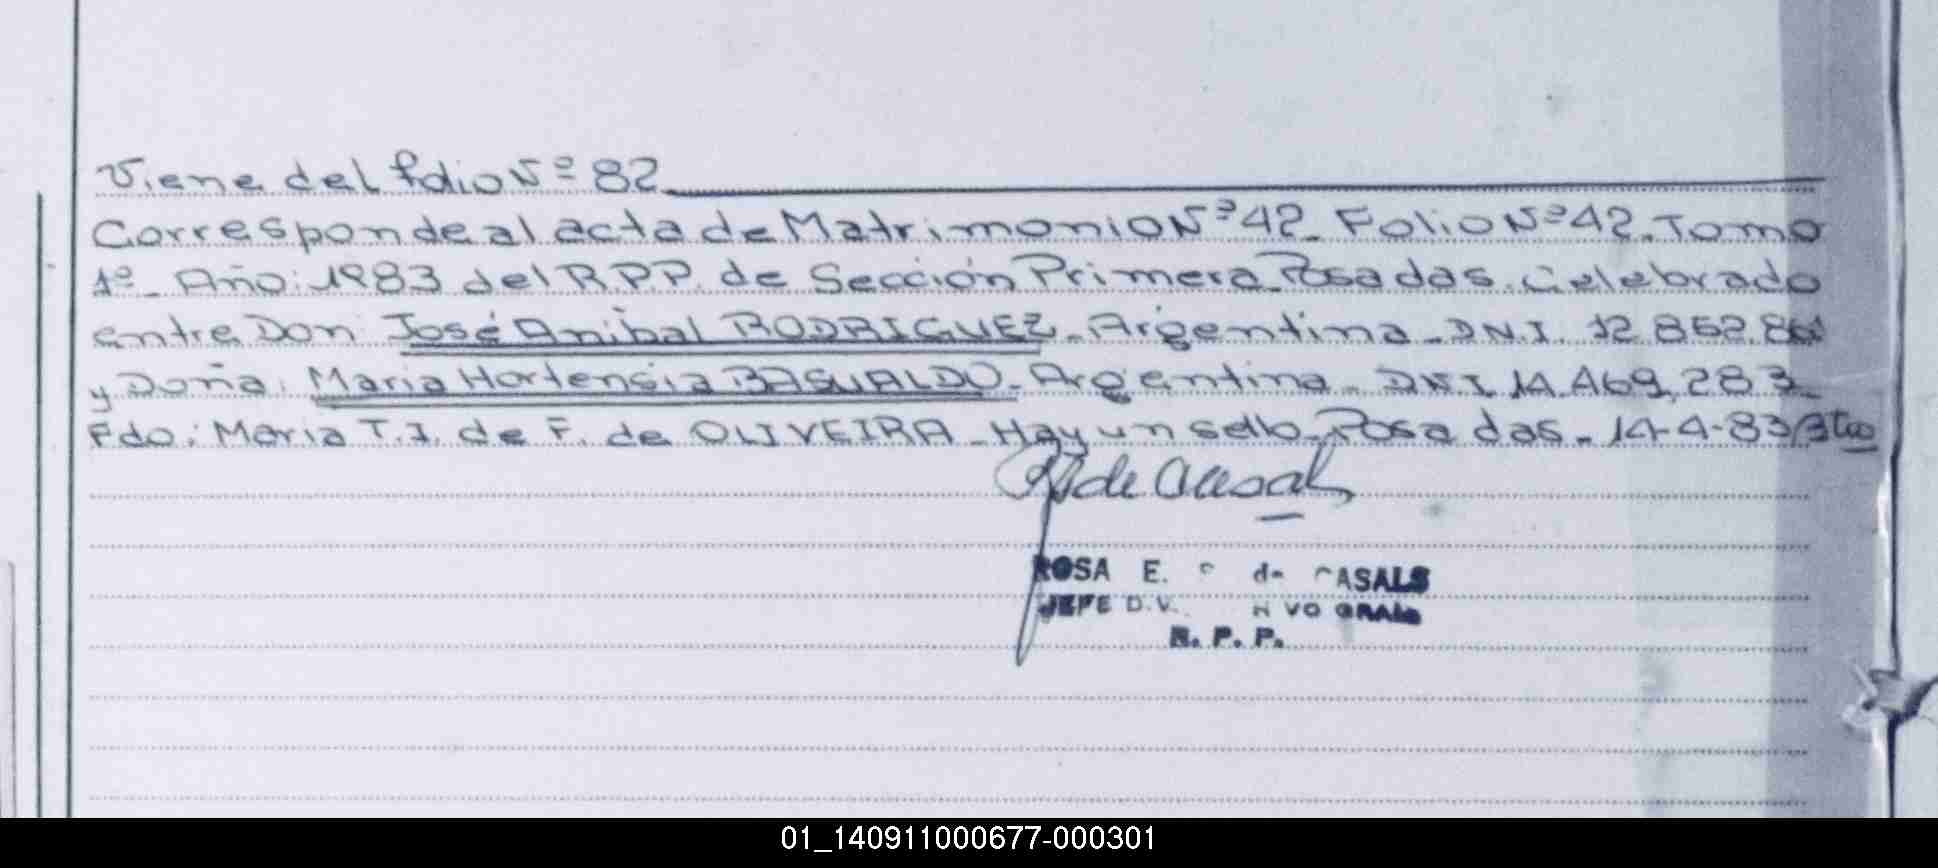 Viene del folio Nº 82
Corresponde al acta de Matrimonio Nº 42. Folio Nº 42. Tomo
1º_ Año: 1983 del R.P.P. de Sección Primera Posadas. Celebrado
entre Don José Anibal RODRIGUEZ. Argentina. D.N.I. 12.852.
y Doña: Maria Hortensia BASUALDO. Argentina. DNI 14.469.283_
Fdo: Maria T.J. de F. de OLIVEIRA_Hay un sello. Posadas. 14-4-83
de Casals
ROSA E. de CASALS
JEFE
R. P. P.
01_140911000677-000301